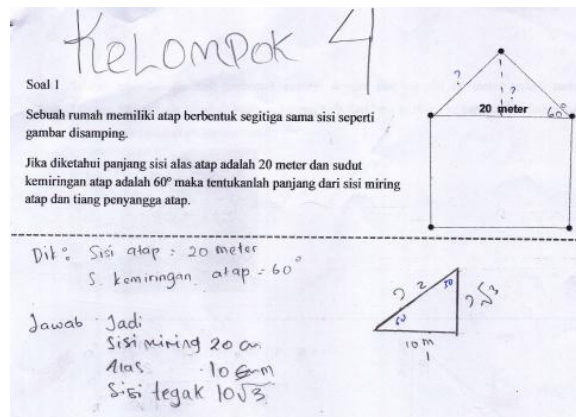 KeLOMPOK 4
Soal 1
Sebuah rumah memiliki atap berbentuk segitiga sama sisi seperti
gambar disamping.
Jika diketahui panjang sisi alas atap adalah 20 meter dan sudut
kemiringan atap adalah 60° maka tentukanlah panjang dari sisi miring
atap dan tiang penyangga atap.
?
?
20 meter
60°
Dik : Sisi atap = 20 meter
S. kemiringan atap = 60°
Jawab Jadi
Sisi miring 20
Alas 10 m
Sisi tegak 10√3
? 2
30
? √3
60
10 m
1